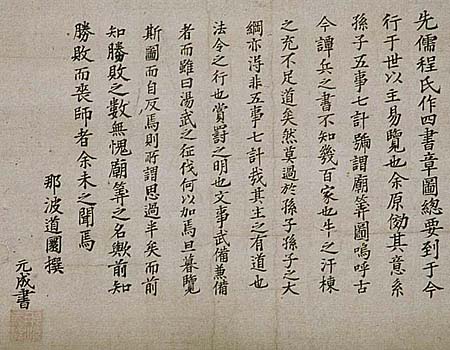 先儒程氏作四書章圖總要到于今
行于世以主易覽也余原倣其意系
孫子五事七計號謂廟筭圖嗚呼古
今譚兵之書不知幾百家也牛之汗棟
之充不足道矣然莫過於孫子孫子之大
綱亦淂非五事七計哉其主之有道也
法令之行也賞罰之明也文事武備兼備
者而雖曰湯武之征伐何以加焉旦暮覽
斯圖而自反焉則所謂思過半矣而前
知勝敗之數無愧廟筭之名歟前知
勝敗而喪師者余未之聞焉
那波道圓撰
元成書